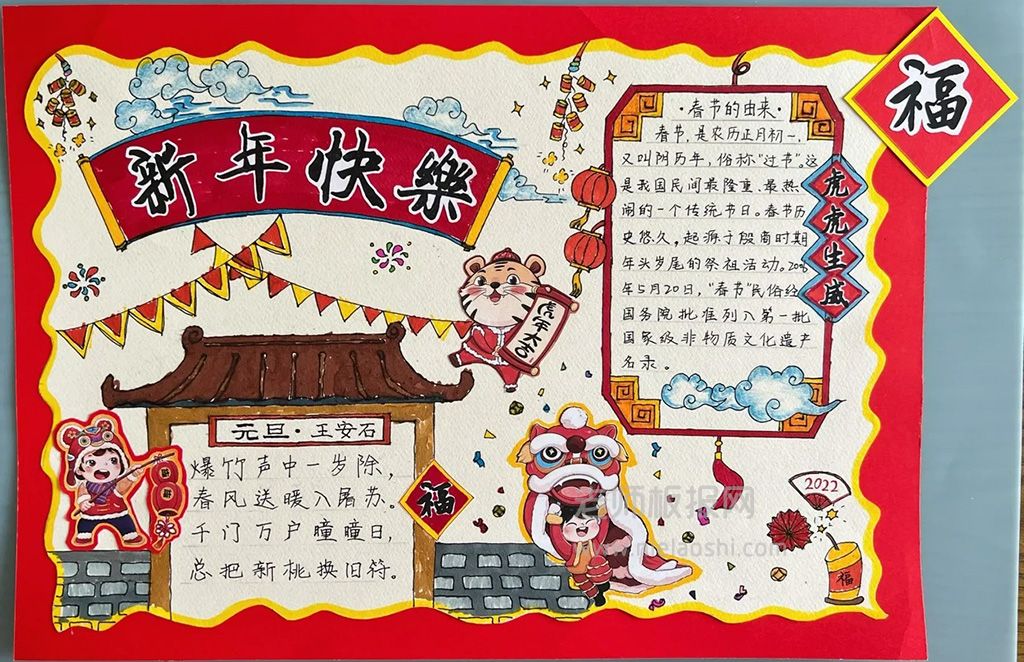 新年快樂
福
·春节的由来·
春节,是农历正月初一,
又叫阴历年,俗称“过节”。这
是我国民间最隆重、最热
闹的一个传统节日。春节历
史悠久,起源于殷商时期
年头岁尾的祭祖活动。2006
年5月20日,“春节”民俗经
国务院批准列入第一批
国家级非物质文化遗产
名录。
虎虎生威
虎年大吉
元旦·王安石
爆竹声中一岁除,
春风送暖入屠苏。
千门万户曈曈日,
总把新桃换旧符。
福
2022
福
老师板报网